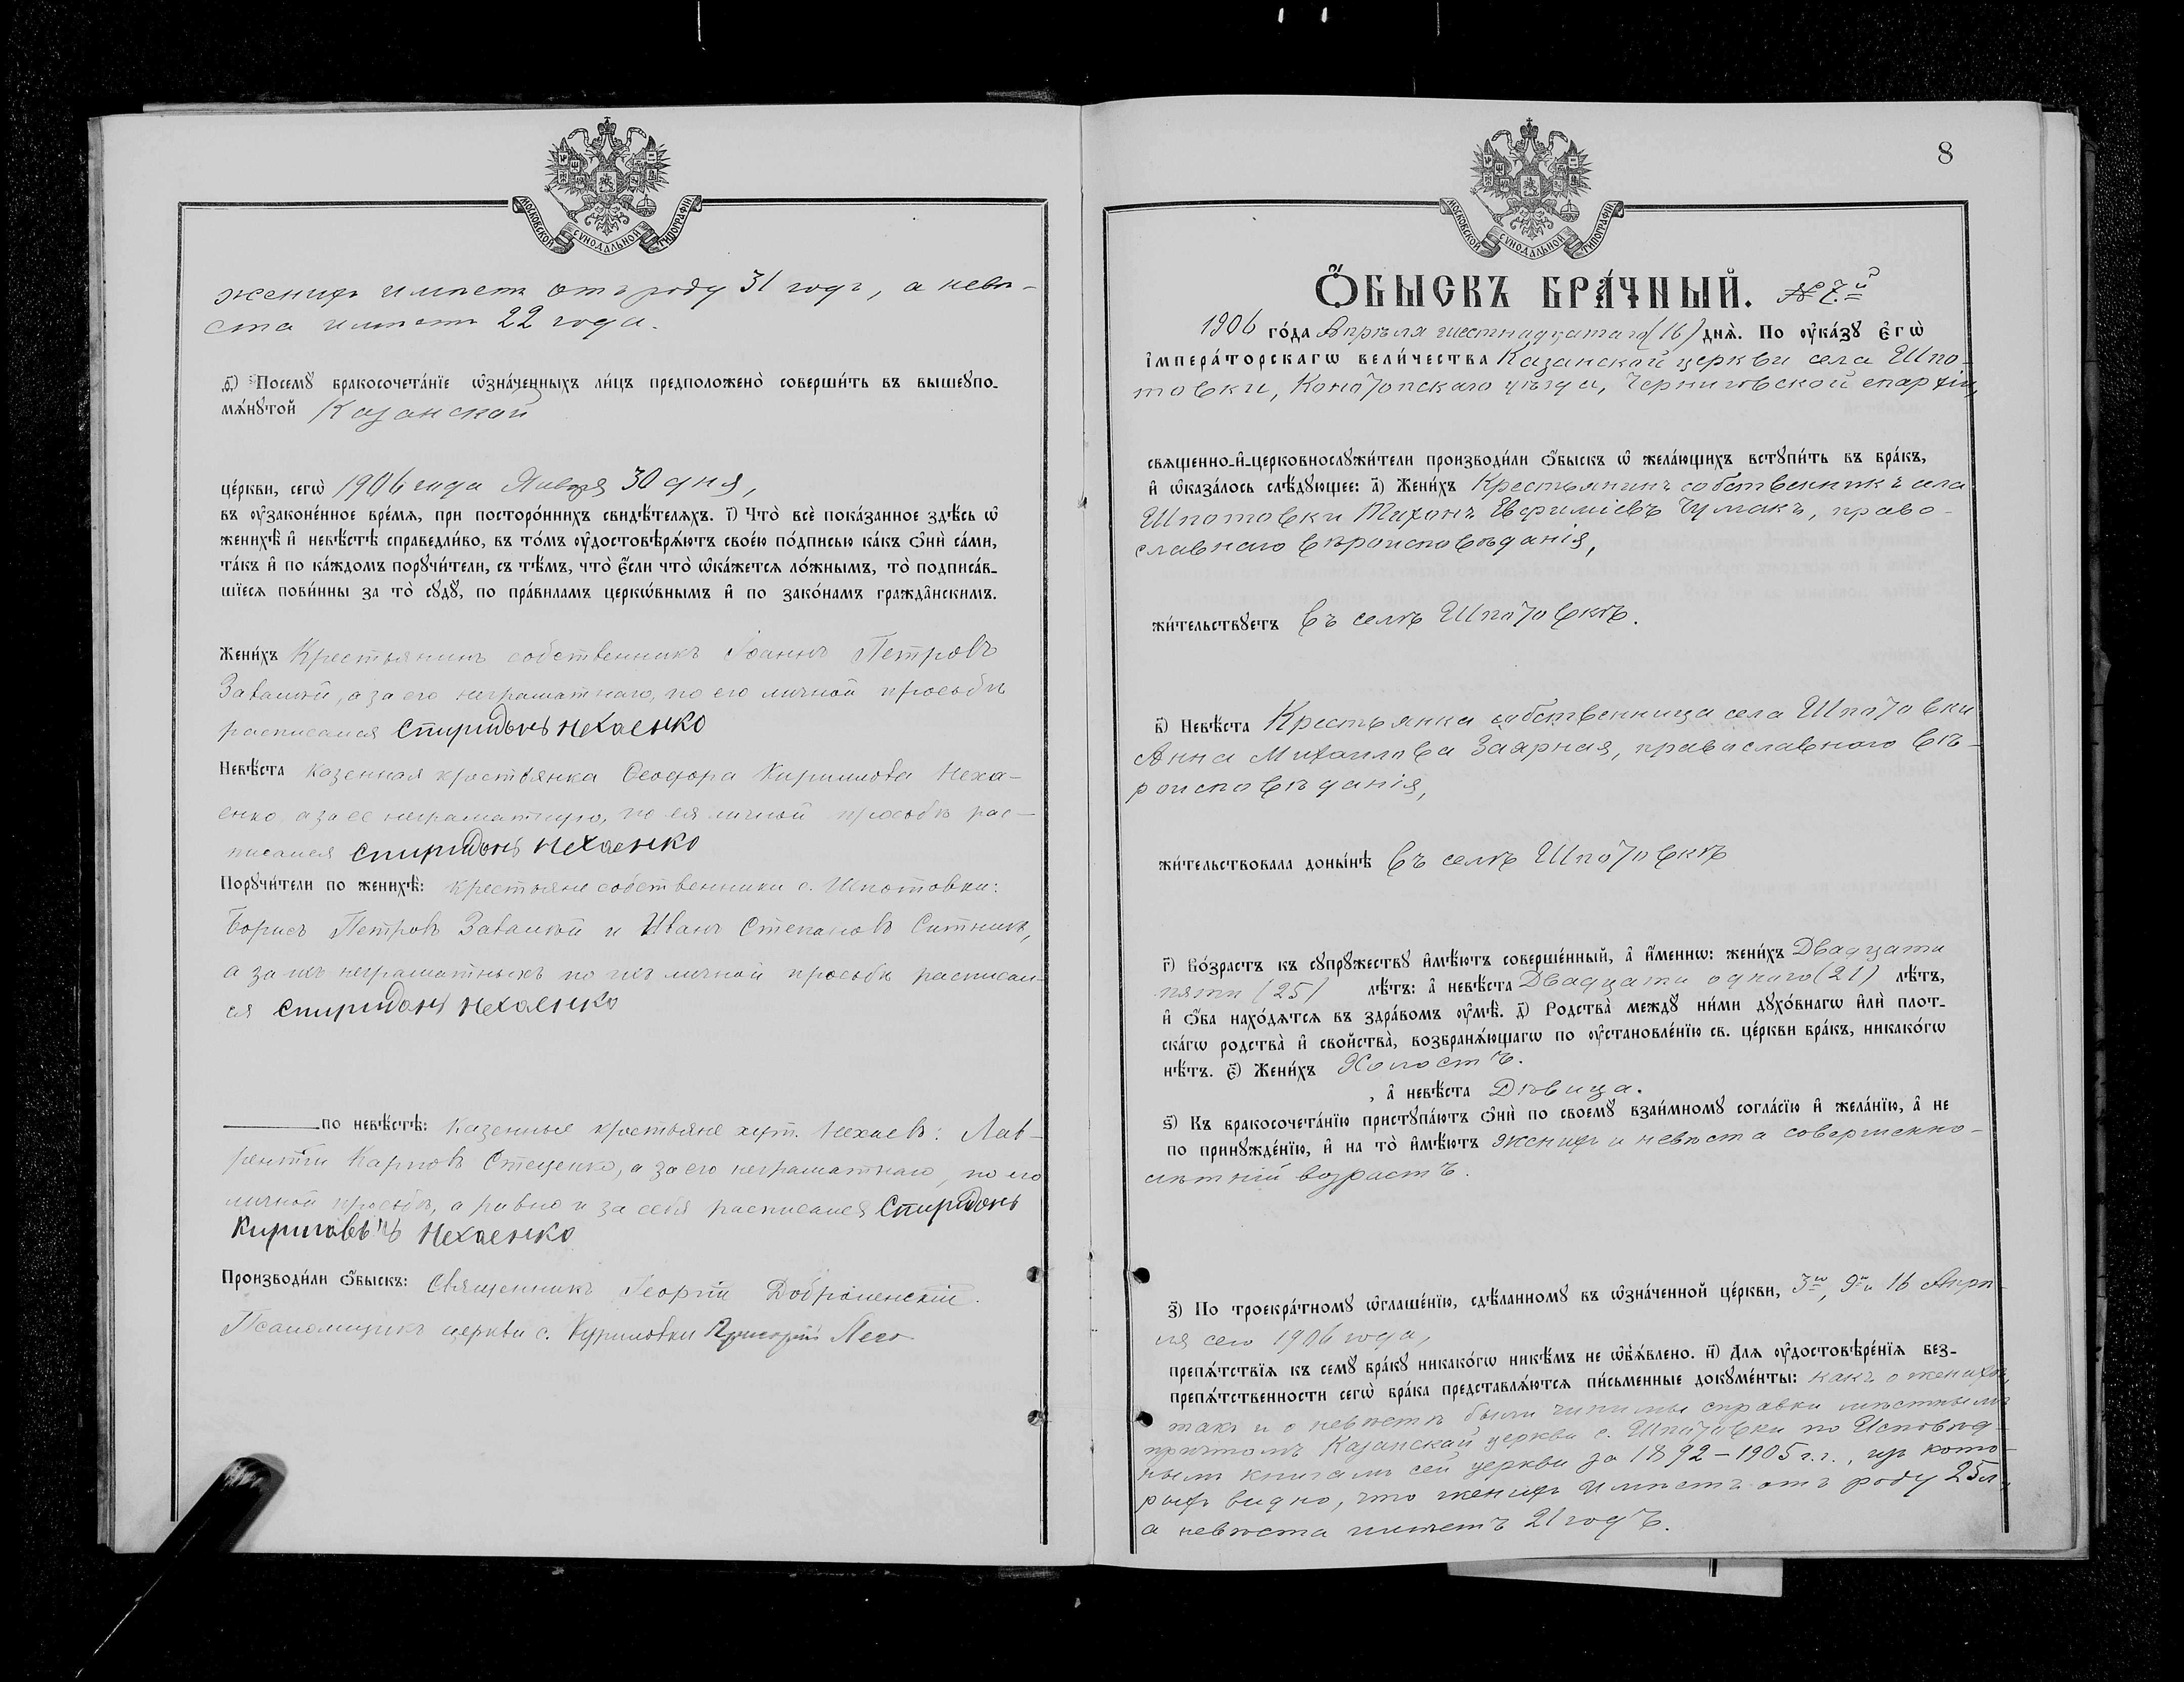 МОСКОВСКОЙ СѴНОДАЛЬНОЙ ТИПОГРАФІИ
женихъ имѣетъ отъ роду 31 годъ, а невѣ-
ста имѣетъ 22 года.
Посемꙋ бракосочета́нїе ѡ҆зна́ченныхъ ли́цъ предположено̀ соверши́ть въ вышеꙋпо-
мѧ́нꙋтой Казанской
це́ркви, сегѡ̀ 1906 года Января 30 дня,
въ ᲂу҆законе́нное вре́мѧ, при посторо́ннихъ свидѣ́телѧхъ. і҃) Что̀ всѐ пока́занное здѣ́сь ѡ҆
женихѣ̀ и҆ невѣ́стѣ справедли́во, въ то́мъ ᲂу҆достовѣрѧ́ютъ свое́ю по́дписью ка́къ ѻ҆нѝ са́ми,
та́къ и҆ по ка́ждомъ порꙋчи́тели, съ тѣ́мъ, что̀ є҆́сли что̀ ѡ҆ка́жетсѧ ло́жнымъ, то̀ подписа́в-
шїесѧ пови́нны за то̀ сꙋдꙋ̀, по пра́виламъ церкѡ́внымъ и҆ по зако́намъ гражда̂нскимъ.
Жени́хъ Крестьянинъ собственникъ Іоаннъ Петровъ
Завалюй, а за его неграматнаго, по его личной просьбѣ
расписался Спиридонъ Нехаенко
Невѣ́ста казенная крестьянка Ѳеодора Кириллова Неха-
енко, а за ее неграматную, по ея личной просьбѣ рас-
писался Спиридонъ Нехаенко
Порꙋчи́тели по женихѣ̀: крестьяне собственники с. Шпотовки:
Борисъ Петровъ Завалюй и Иванъ Степановъ Ситникъ,
а за ихъ неграматныхъ по ихъ личной просьбѣ расписал-
ся Спиридонъ Нехаенко
по невѣ́стѣ: Казенные крестьяне хут. Нехаевъ: Лав-
рентій Карповъ Стеценко, а за его неграматнаго, по его
личной просьбѣ, а равно и за себя расписался Спиридонъ
Нехаенко
Производи́ли ѻ҆́быскъ: Священникъ Георгій
Псаломщикъ церкви с. Куриловки Григорій
8
МОСКОВСКОЙ СѴНОДАЛЬНОЙ ТИПОГРАФІИ
Ѻ҆́БЫСКЪ БРА́ЧНЫЙ. № 7.й
1906 го́да Апрѣля шестнадцатаго (16) днѧ̀. По ᲂу҆ка́зꙋ є҆гѡ̀
і҆мпера́торскагѡ вели́чества Казанской церкви села Шпо-
товки, Конотопскаго уѣзда, Черниговской епархіи,
свѧщенно-и҆-церковнослꙋжи́тели производи́ли ѻ҆́быскъ ѡ҆ жела́ющихъ встꙋпи́ть въ бра́къ,
и҆ ѡ҆каза́лось слѣ́дꙋющее: а҃) Жени́хъ Крестьянинъ собственникъ села
Шпотовки Тихонъ Евфиміевъ Чумакъ, право-
славнаго вѣроисповѣданія,
жи́тельствꙋетъ въ селѣ Шпотовкѣ.
в҃) Невѣ́ста Крестьянка собственница села Шпотовки
Анна Михаилова Заярная, православнаго вѣ-
роисповѣданія,
жи́тельствовала доны́нѣ въ селѣ Шпотовкѣ
г҃) Во́зрастъ къ сꙋпрꙋ́жествꙋ и҆мѣ́ютъ соверше́нный, а҆ и҆́меннѡ: жени́хъ Двадцати
пяти (25) лѣ́тъ: а҆ невѣ́ста Двадцати одного (21) лѣ́тъ,
и҆ ѻ҆́ба нахо́дѧтсѧ въ здра́вомъ ᲂу҆мѣ̀. д҃) Родства̀ междꙋ̀ ни́ми дꙋхо́внагѡ и҆лѝ плот-
ска́гѡ родства̀ и҆ свойства̀, возбранѧ́ющагѡ по ᲂу҆становле́нїю св. це́ркви бра́къ, никако́гѡ
нѣ́тъ. є҃) Жени́хъ Холостъ.
, а҆ невѣ́ста Дѣвица.
ѕ҃) Къ бракосочета́нїю пристꙋпа́ютъ ѻ҆нѝ по своемꙋ̀ взаи́мномꙋ согла́сїю и҆ жела́нїю, а҆ не
по принꙋжде́нїю, и҆ на то̀ и҆мѣ́ютъ женихъ и невѣста совершенно-
лѣтній возрастъ.
з҃) По троекра́тномꙋ ѡ҆глаше́нїю, сдѣ́ланномꙋ въ ѡ҆зна́ченной це́ркви, 3го, 9 и 16 Апрѣ-
ля сего 1906 года,
препѧ́тствїѧ къ семꙋ̀ бра́кꙋ никако́гѡ никѣ́мъ не ѡ҆б̾ѧ́влено. и҃) Длѧ ᲂу҆достовѣре́нїѧ без-
препѧ́тственности сегѡ̀ бра́ка представлѧ́ютсѧ пи́сьменные докꙋме́нты: какъ о женихѣ,
такъ и о невѣстѣ были чинимы справки мѣстнымъ
причтомъ Казанской церкви с. Шпотовки по Исповѣд-
нымъ книгамъ сей церкви за 1892-1905 г.г., изъ кото-
рыхъ видно, что женихъ имѣетъ отъ роду 25 л.,
а невѣста имѣетъ 21 годъ.